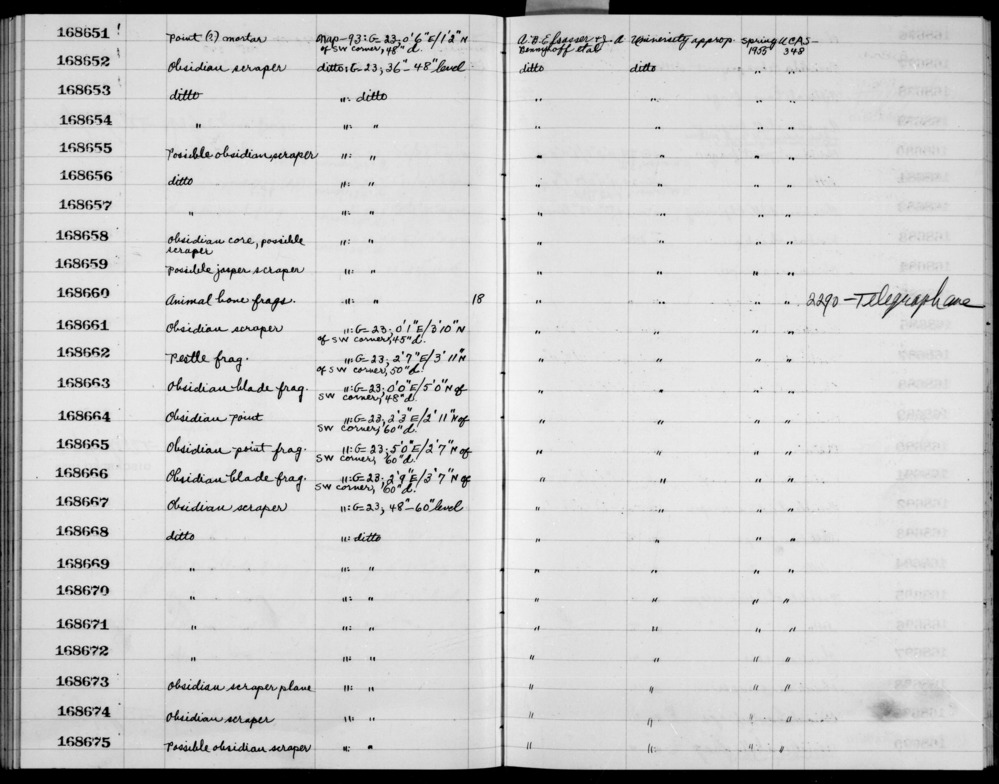 168651 Point (?) mortar Nap-93: G-23; 0'6"E/1'2"N of SW corner, 48"d. A.B. Elsasser + J. A Bennyhoff et al University approp. Spring 1955 UCAS-348
168652 Obsidian scraper ditto: G-23; 36"-48" level ditto ditto " "
168653 ditto ": ditto " " " "
168654 " ": " " " " "
168655 Possible obsidian scraper ": " " " " "
168656 ditto ": " " " " "
168657 " ": " " " " "
168658 Obsidian core, possible scraper ": " " " " "
168659 Possible jasper scraper ": " " " " "
168660 Animal bone frags. ": " 18 " " " " 2290 - Telegraph ave
168661 Obsidian scraper ": G-23; 0'1"E/3'10"N of SW corner, 45"d. " " " "
168662 Pestle frag. ": G-23; 2'7"E/3'11"N of SW corner, 50"d. " " " "
168663 Obsidian blade frag. ": G-23; 0'0"E/5'0"N of SW corner, 48"d. " " " "
168664 Obsidian point ": G-23; 2'3"E/2'11"N of SW corner, 60"d. " " " "
168665 Obsidian point frag. ": G-23; 5'0"E/2'7"N of SW corner, 60"d. " " " "
168666 Obsidian blade frag. ": G-23; 2'9"E/3'7"N of SW corner, 60"d. " " " "
168667 Obsidian scraper ": G-23, 48"-60" level " " " "
168668 ditto ": ditto " " " "
168669 " ": " " " " "
168670 " ": " " " " "
168671 " ": " " " " "
168672 " ": " " " " "
168673 Obsidian scraper plane ": " " " " "
168674 Obsidian scraper ": " " " " "
168675 Possible obsidian scraper ": " " " " "